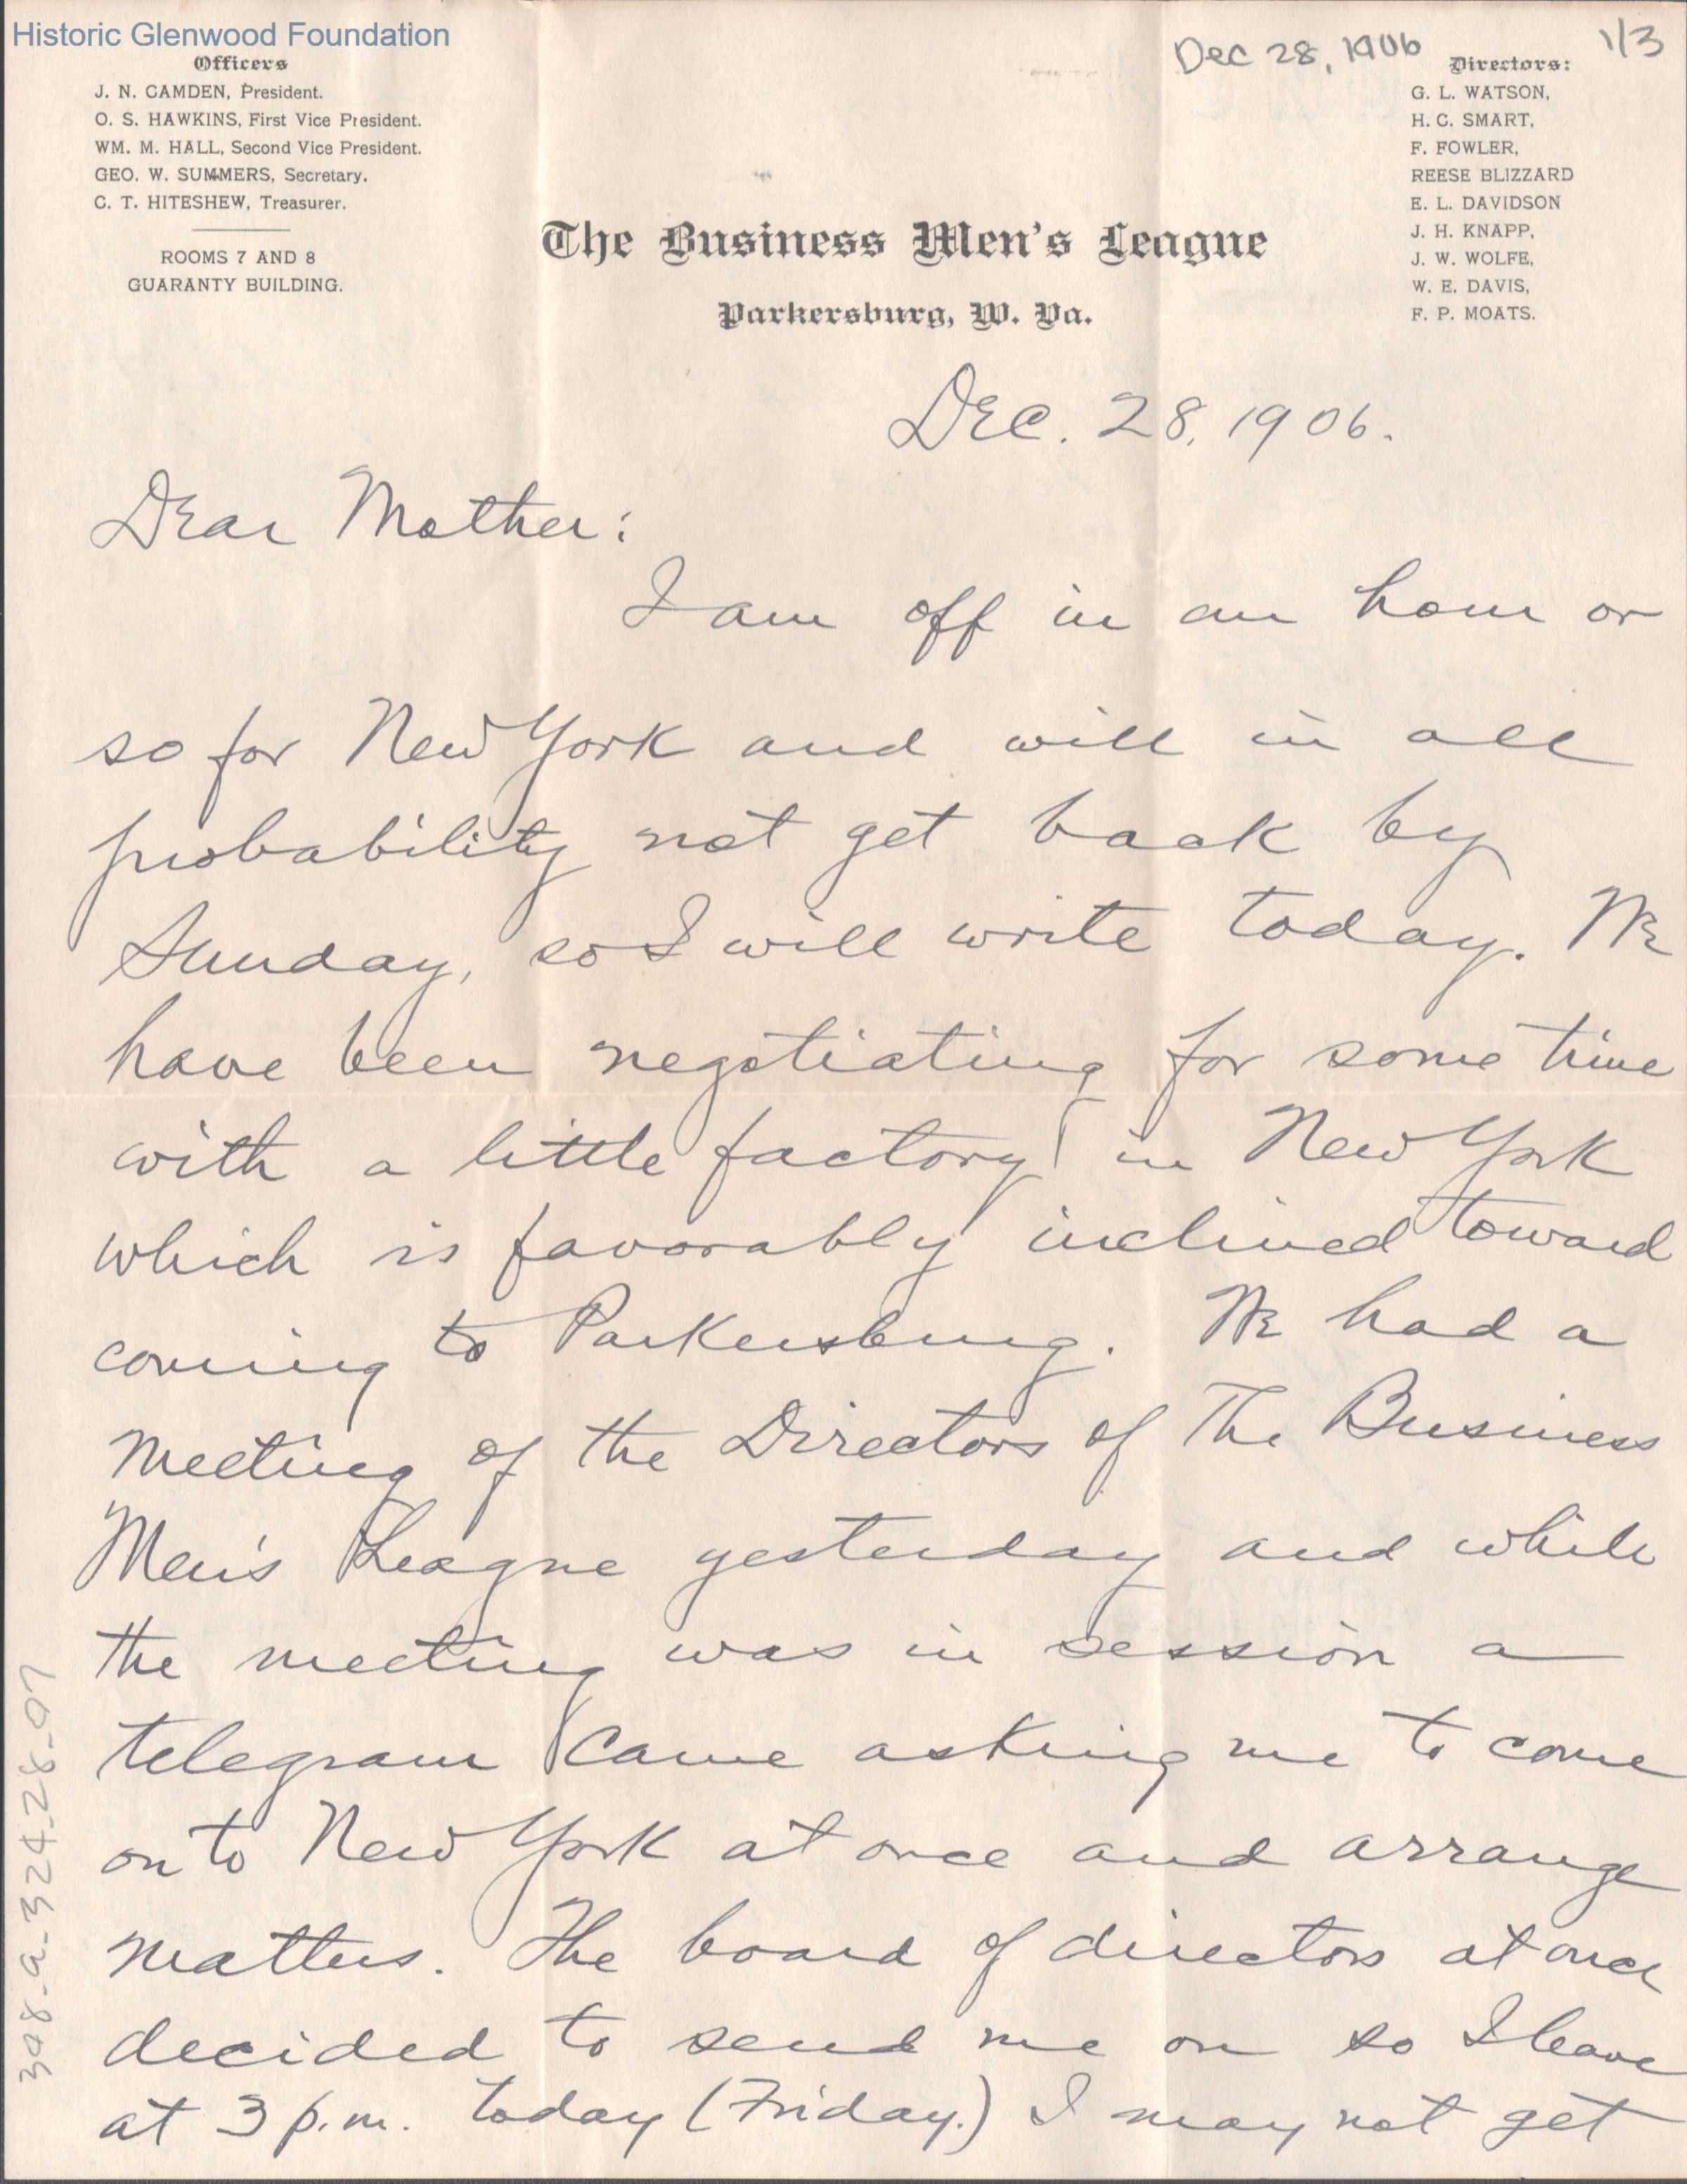 Historic Glenwood Foundation
Dec 28, 1906
1/3
Officers
J. N. CAMDEN, President.
O. S. HAWKINS, First Vice President.
WM. M. HALL, Second Vice President.
GEO. W. SUMMERS, Secretary.
C. T. HITESHEW, Treasurer.
ROOMS 7 AND 8
GUARANTY BUILDING.
Directors:
G. L. WATSON,
H. C. SMART,
F. FOWLER,
REESE BLIZZARD
E. L. DAVIDSON
J. H. KNAPP,
J. W. WOLFE,
W. E. DAVIS,
F. P. MOATS.
The Business Men's League
Parkersburg, W. Va.
Dec. 28, 1906.
Dear Mother:
I am off in an hour or
so for New York and will in all
probability not get back by
Sunday, so I will write today. We
have been negotiating for some time
with a little factory in New York
which is favorably inclined toward
coming to Parkersburg. We had a
meeting of the Directors of The Business
Men's League yesterday and while
the meeting was in session a
telegram came asking me to come
on to New York at once and arrange
matters. The board of directors at once
decided to send me on so I leave
at 3 p.m. today (Friday.) I may not get
398-a-324-28-07